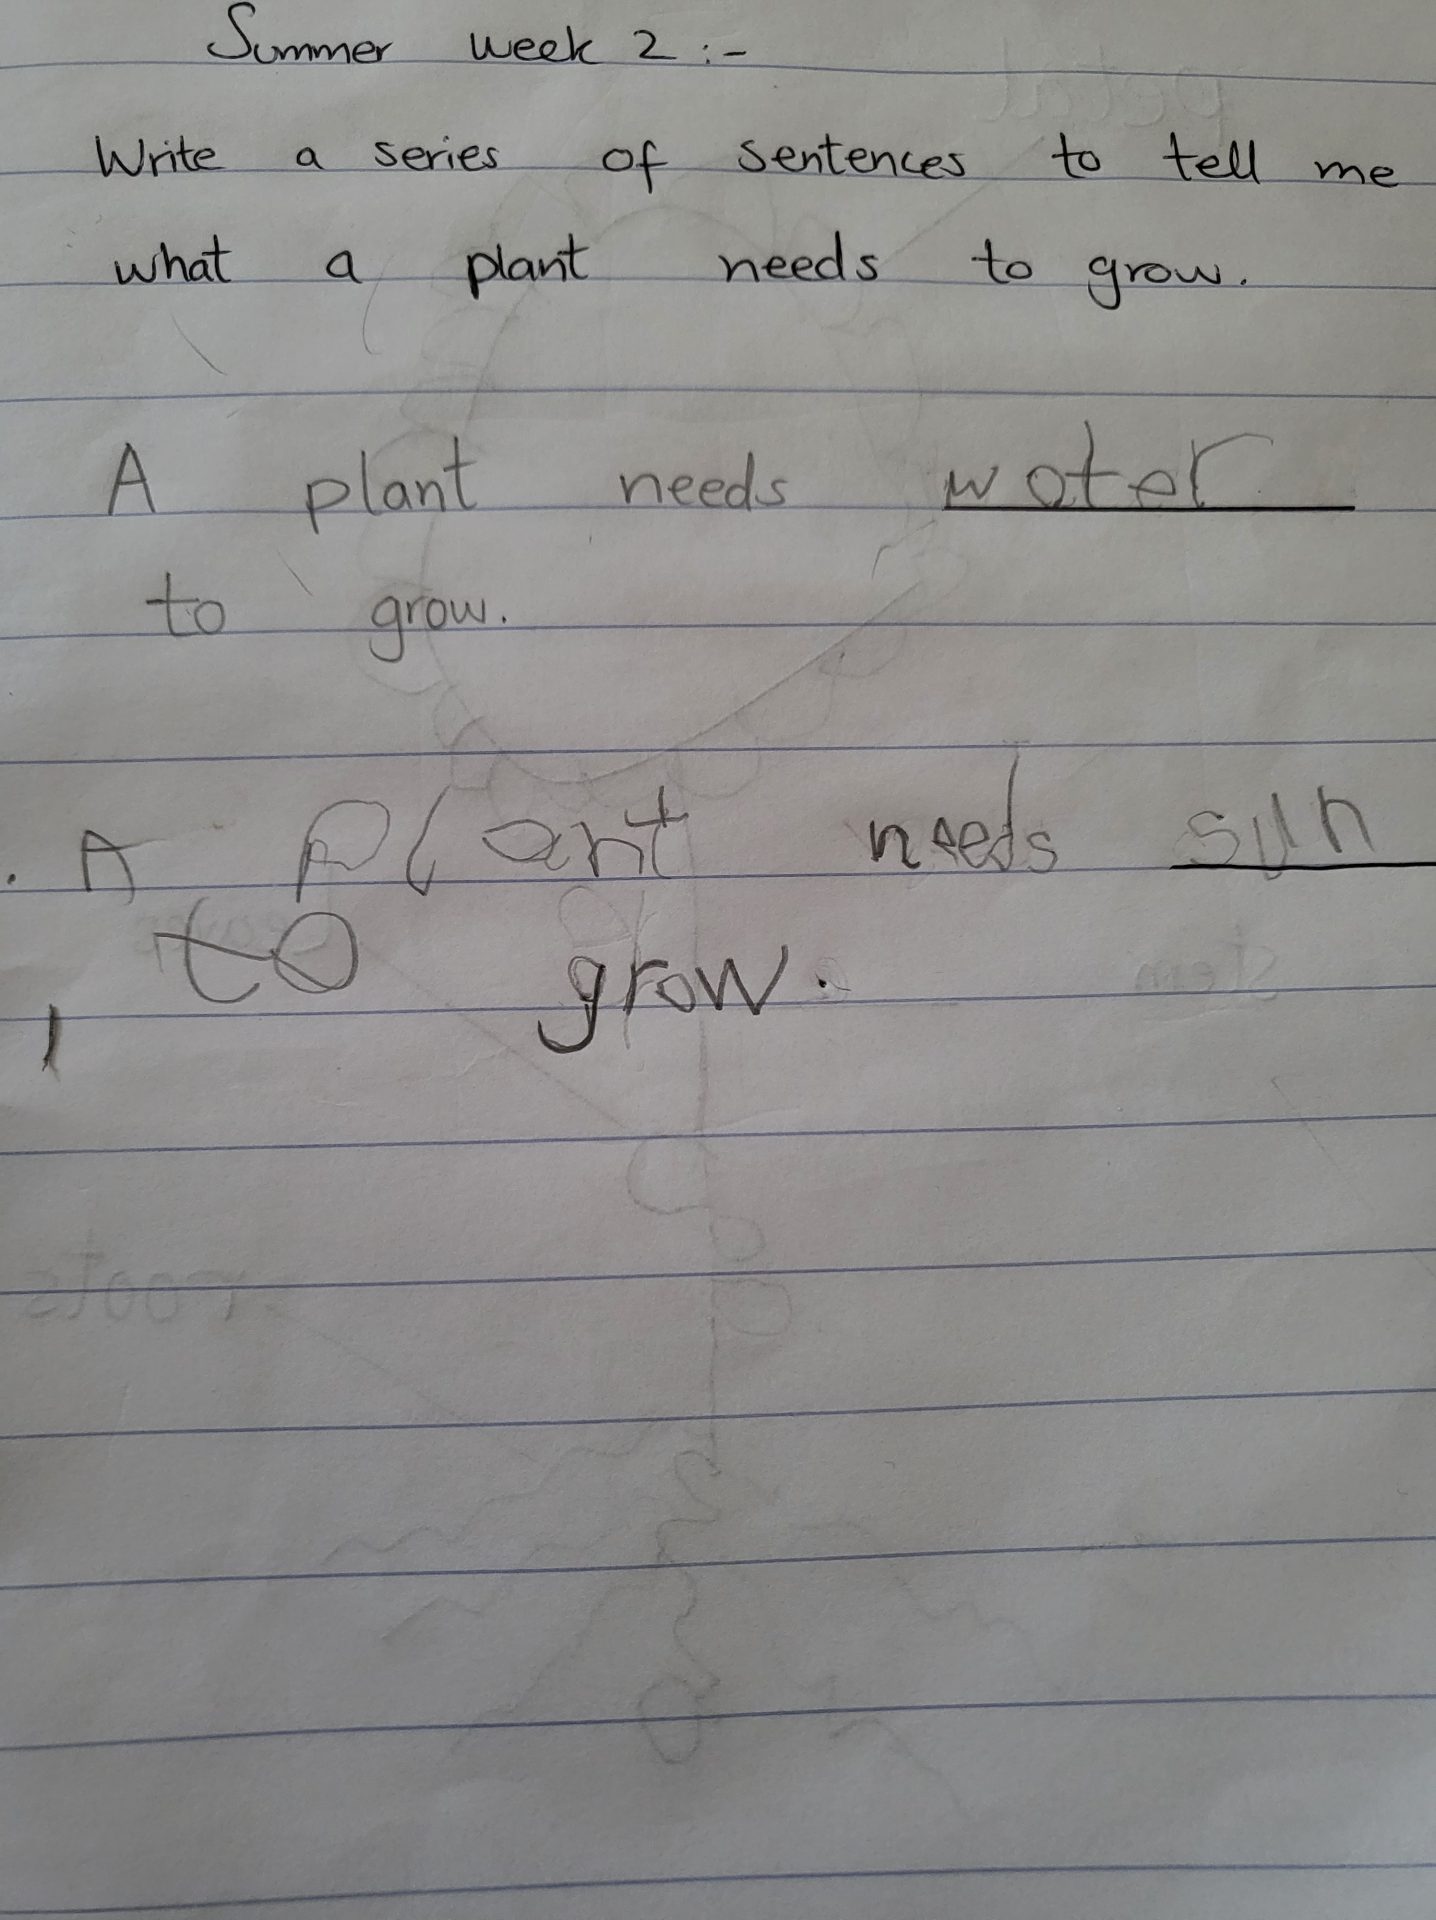 Summer week 2 :-
Write a series of sentences to tell me
what a plant needs to grow.
A plant needs water
to grow.
. A plant needs sun
to grow.
petal
stem
roots